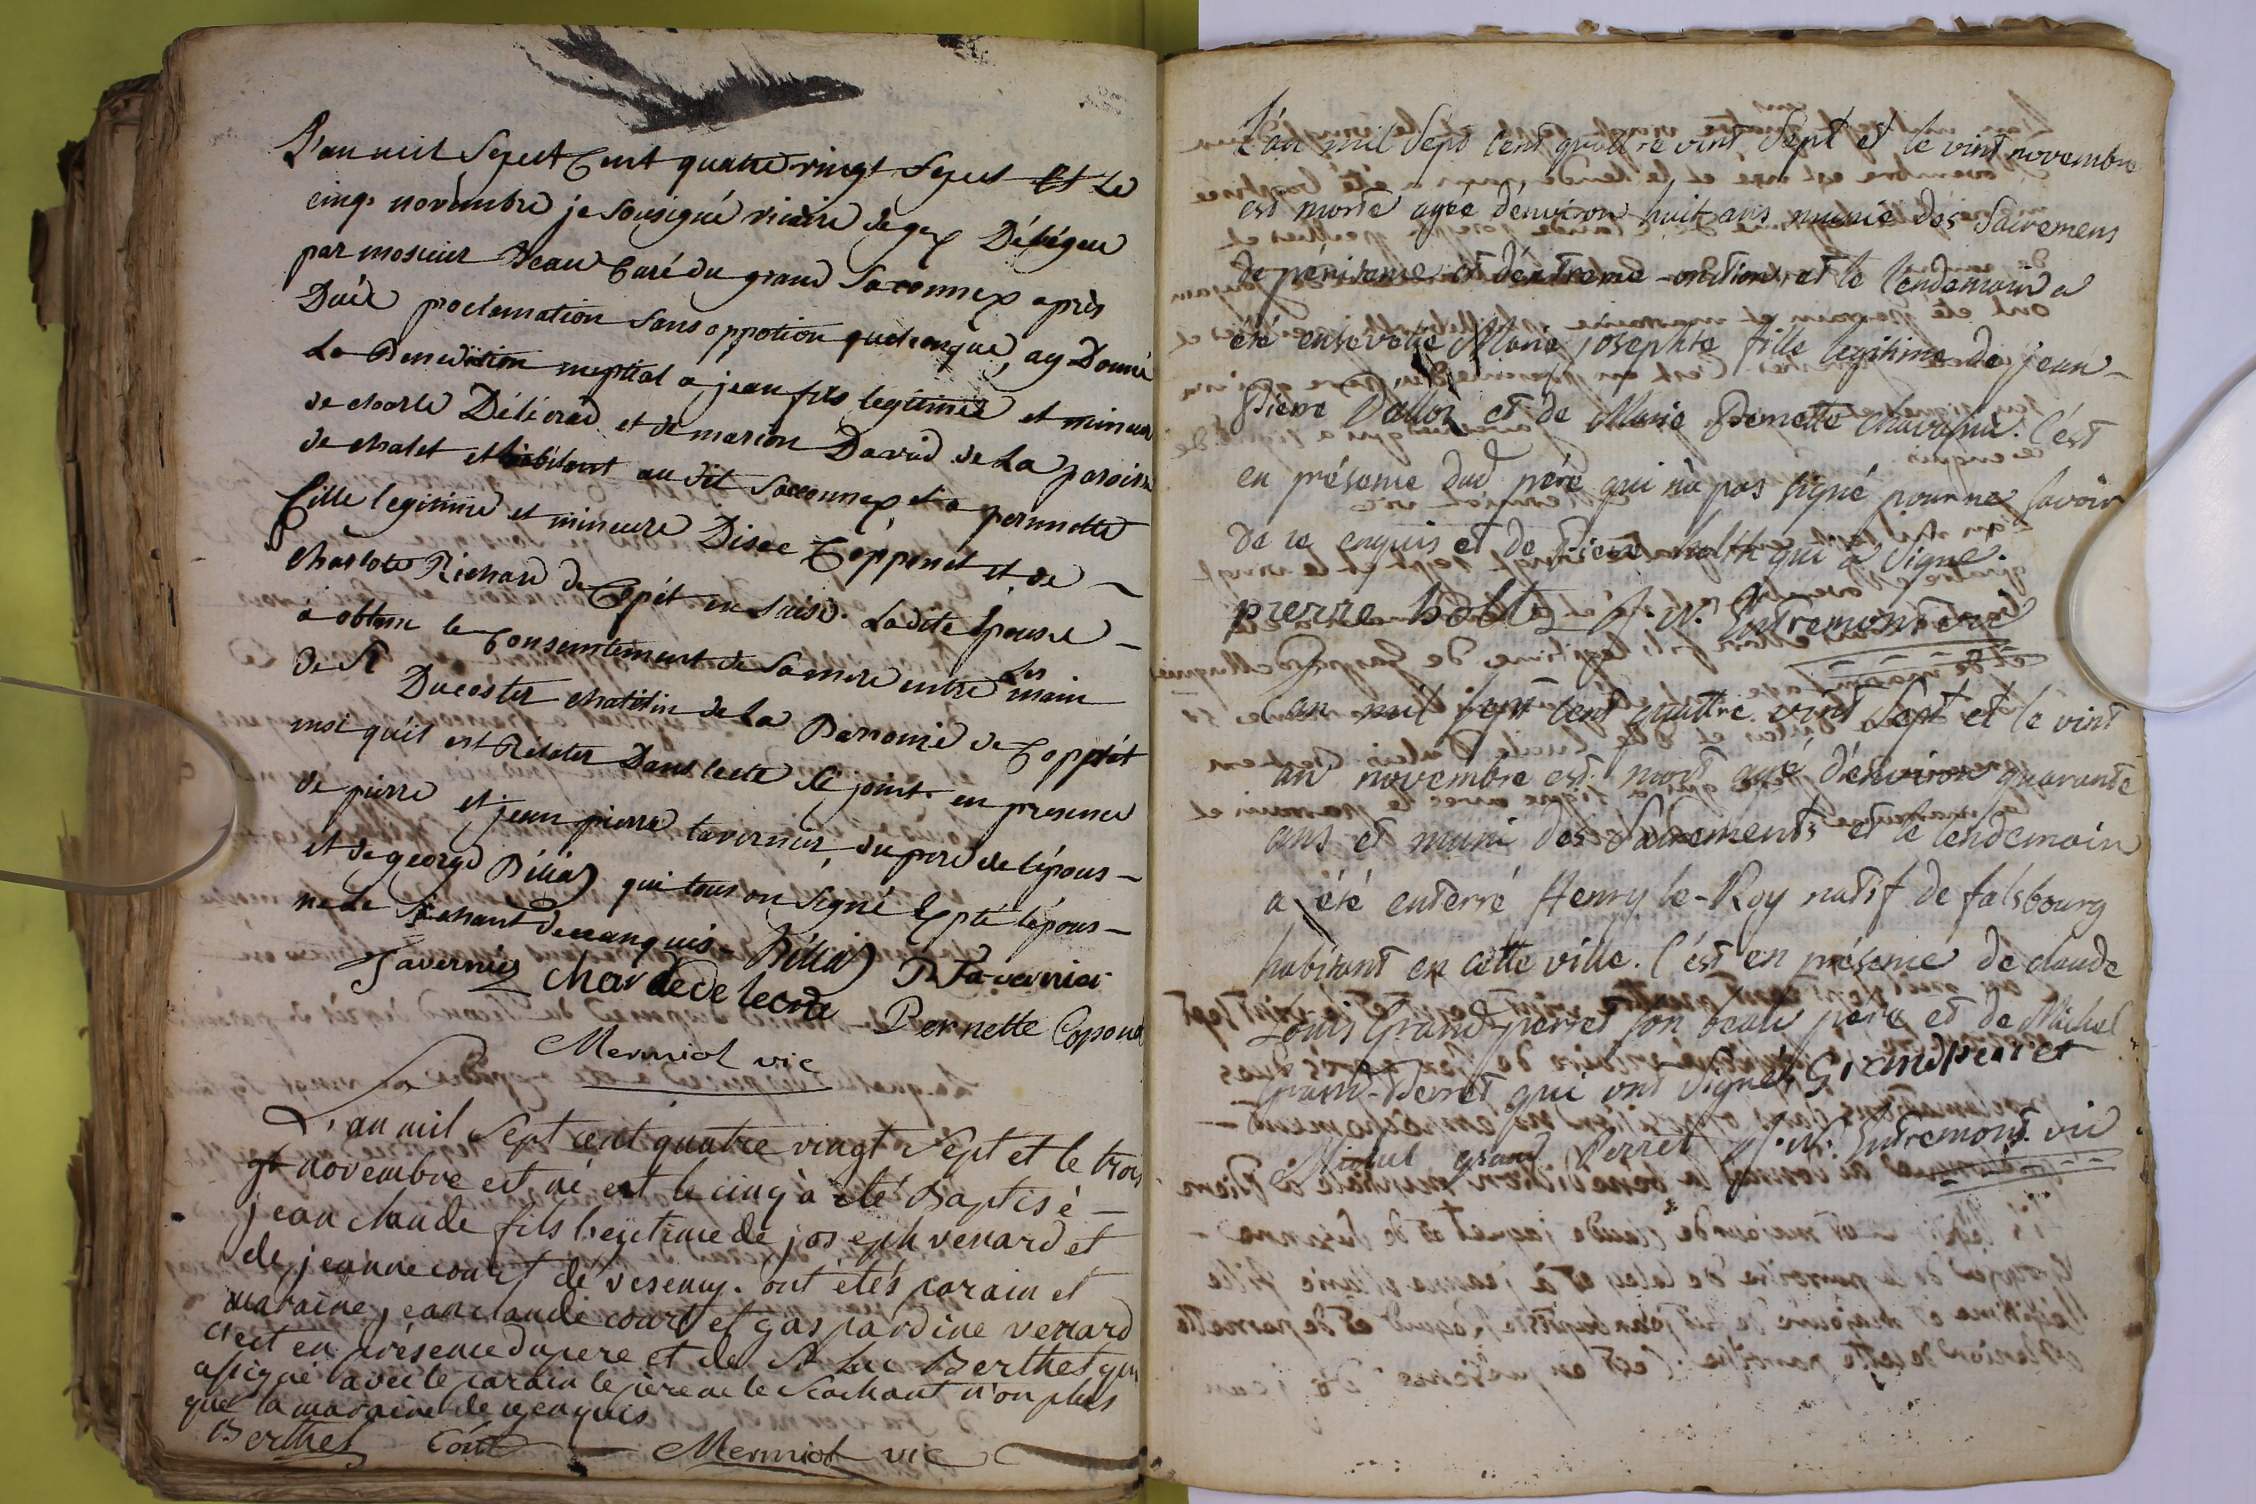 L'an mil Sept Cent quatre vingt Sept Et Le
cinq novembre je Sousigné vicaire de gex Délégué
par mosieur Beau Curé du grand Saconnex après
Duë proclamation Sans oppotion quelconque, ay Donné
La Benediction nuptial a jean fils legitime et mineur
de charle et de marion David de La paroisse
de chalet et habitant au dit Saconnex et a pernnette
fille legitime et mineure Disac Copponet et de
Charlote Richard de Copét en Suise. Ladite Epouse
a obtenu le Consentement de Sa mere entre les main
de Sr Ducoster chatelin de La Baronie de Coppét
insi qu'il est Relater Dans lacte Ci joint. en presence
de pierre et jean pierre tavernier, du pere de l'épous
et de george Bélia qui tous on Signé Expté l'épous
ne le Sachant de ce anquis. Bélia P Tavernier
Tavernier
Pernette Coponet
Mermiol vic
L'an mil Sept cent quatre vingt Sept et le trois
novembre est né et le cinq à eté Baptisé
jean claude fils legitime de joseph venard et
de jeanne court de vesenuy. ont étés parain et
maraine jean claude court et gaspardine venard
c'est en présence du pere et de Sr Luc Berthet qui
a signé avec le parain le père ne le Scachant n'on plus
que la maraine de ce enquis
Berthet Court Mermiol vic
L'an mil Sept cent quattre vint Sept et le vint novembre
est morte agée d'environ huit ans munie des Sacremens
de pénitence et d'extreme-onction, et le lendemain a
été ensevelie Marie josephte fille legitime de jean
Pierre Dalloz et de Marie Pernette Chavasin. C'est
en présence dud père qui n'a pas signé pour ne savoir
de ce enquis et de Pierre holtk qui a Signé.
pierre holtz J. M. Entremont vic
L'an mil sept cent quattre vint Sept et le vint
un novembre est mort agé d'environ quarante
ans et muni des Sacrements et le lendemain
a été enterré Henry le-Roy natif de falsbourg
habitant en cette ville. C'est en présence de claude
Louis Grand-perret son beau père et de Michel
Grand-Perret qui ont Signés Grandperret
Michel grand Perret J. M. Entremont vic